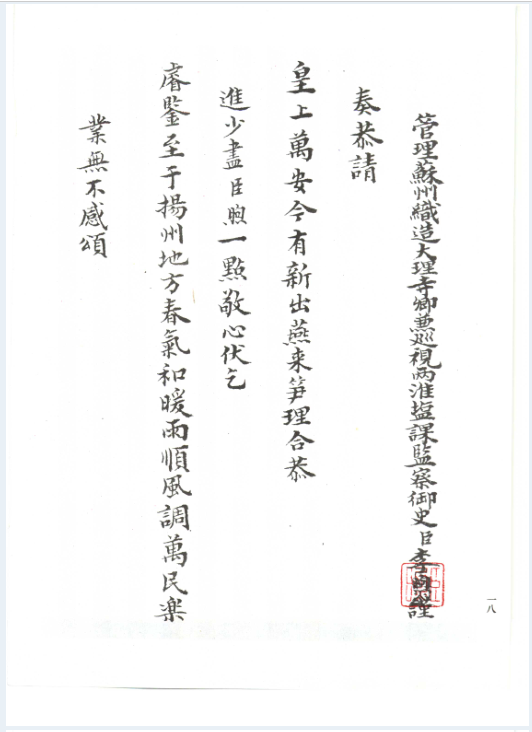 管理蘇州織造大理寺卿兼巡視兩淮塩課監察御史臣李煦謹
奏恭請
皇上萬安今有新出燕来笋理合恭
進少盡臣煦一點敬心伏乞
睿鑒至于揚州地方春氣和暖雨順風調萬民楽
業無不感頌
一八